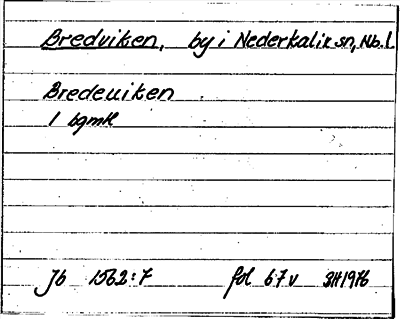 Bredviken, by i Nederkalix sn, Nb.l.
Bredeuiken
1 bgmtl
Jb 1562:7 fol 67v 3H1976